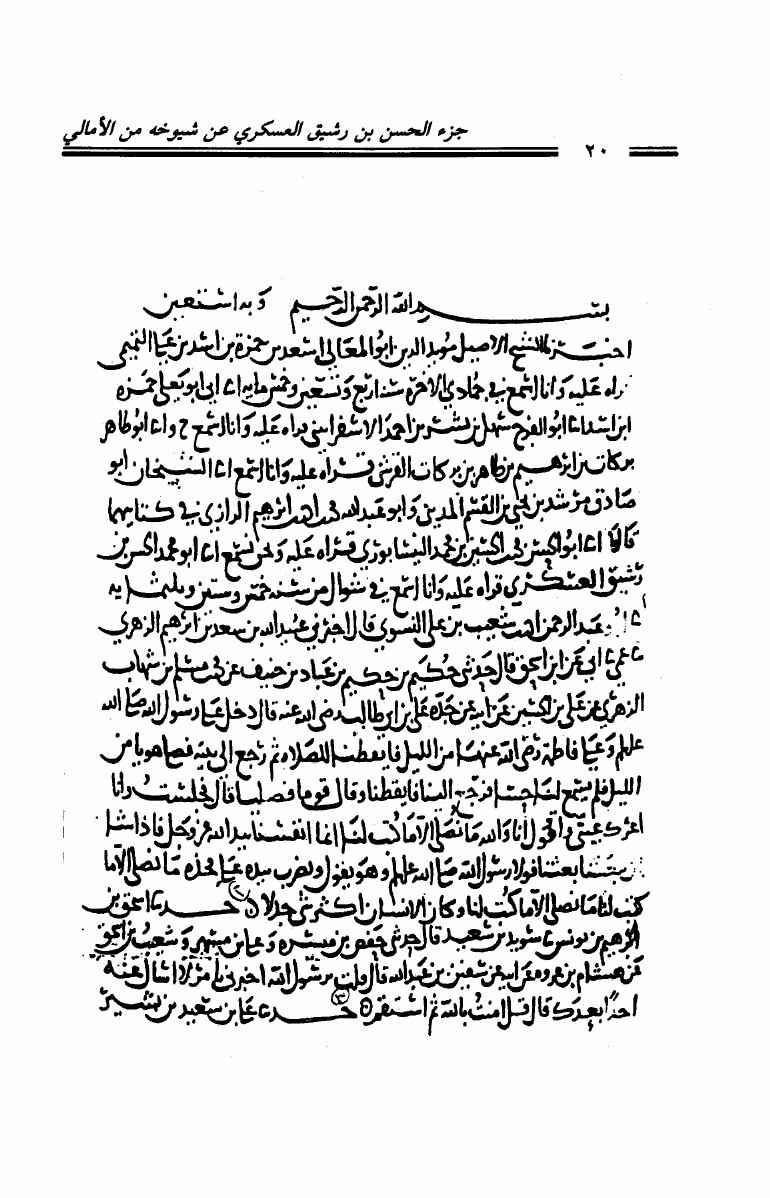 جزء الحسن بن رشيق العسكري عن شيوخه من الأمالي
٢٠
بسم الله الرحمن الرحيم وبه استعين
اخبرنا الشيخ الاصيل مويد الدين ابو المعالي اسعد بن حمزة بن اسد بن علي التميمي
قراه عليه وانا اسمع في جمادي الاخرة سنة اربع وتسعين وخمس مايه انا ابي ابو يعلى حمزه
ابن اسد انا ابو الفرج سهل بن بشر بن احمد الاسفرايني قراه عليه وانا اسمع ح وانا ابو طاهر
بركات بن ابرهيم بن طاهر بن بركات القرشي قراه عليه وانا اسمع انا الشيخان ابو
صادق مرشد بن يحيى بن القسم المديني وابو عبد الله محمد بن احمد بن ابرهيم الرازي في كتابيهما
قالا انا ابو الحسن محمد بن الحسين بن محمد النيسابوري قراه عليه ونحن نسمع انا ابو محمد الحسن بن
رشيق العسكري قراه عليه وانا اسمع في شوال من سنه خمس وستين وثلثمايه
عبد الرحمن احمد بن شعيب بن علي النسوي قال اخبرني عبيد الله بن سعد بن ابرهيم الزهري
نا عمي نا ابي عن ابن اسحق قال حدثني حكيم بن حكيم بن عباد بن حنيف عن محمد بن مسلم بن شهاب
الزهري عن علي بن الحسين عن ابيه عن جده علي بن ابي طالب رضي الله عنه قال دخل علي رسول الله صلى الله
عليه وسلم وعلى فاطمة رضي الله عنها من الليل فايقظنا للصلاه ثم رجع الى بيته فصلى هويا من
الليل فلم يسمع لنا حسا فرجع الينا فايقظنا وقال قوما فصليا قال فجلست وانا
اعرك عيني واقول انا والله ما نصلي الا ما كتب لنا انما انفسنا بيد الله عز وجل فاذا شا
ان يبعثنا بعثنا فولا رسول الله صلى الله عليه وسلم وهو يقول ويضرب بيده على فخذه ما نصلي الا ما
كتب لنا ما نصلي الا ما كتب لنا وكان الانسان اكثر شي جدلا ٢ حدثنا اسحق بن
ابرهيم بن يونس نا سويد بن سعيد قال حدثني حفص بن ميسره وعلي بن مسهر وشعيب بن اسحق
عن هشام بن عروه عن ابيه عن سفين بن عبد الله قال قلت يرسول الله اخبرني بامر لا اسال عنه
احدا بعدك قال قل امنت بالله ثم استقم ٣ حدثنا علي بن سعيد بن بشير